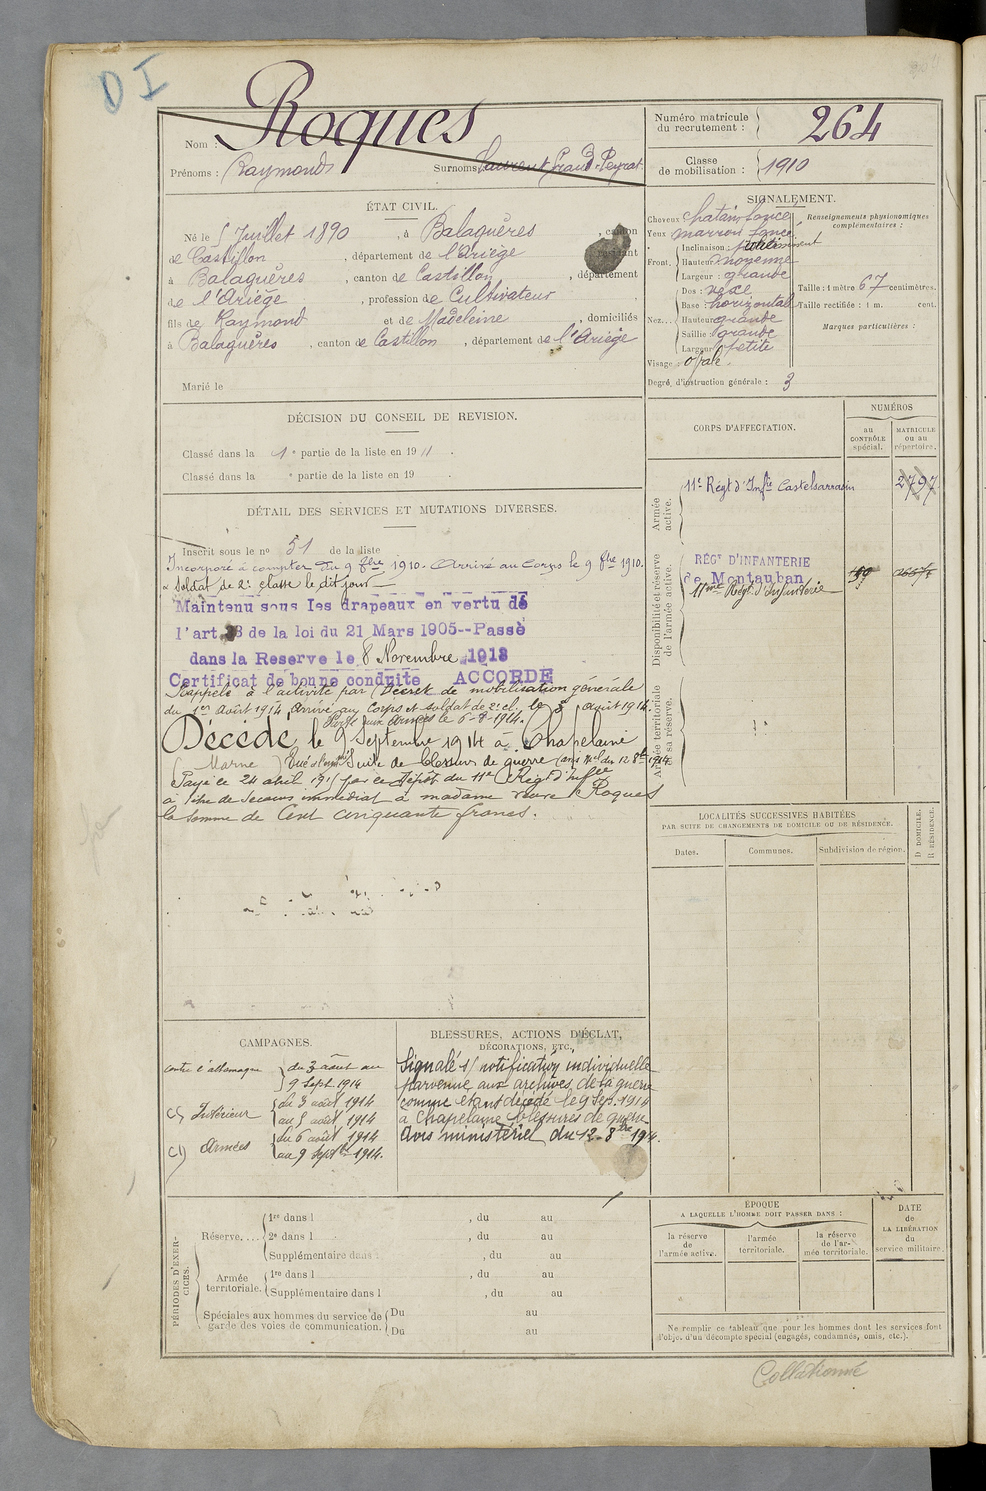 DI
Nom : Roques
Prénoms : Raymond Surnoms
Numéro matricule
du recrutement : 264
Classe
de mobilisation : 1910
ÉTAT CIVIL.
Né le 5 Juillet 1890, à Balaguères, canton
de Castillon, département de l'Ariège résidant
à Balaguères, canton de Castillon, département
de l'Ariège, profession de Cultivateur
fils de Raymond et de Madeleine, domiciliés
à Balaguères, canton de Castillon, département de l'Ariège
Marié le
SIGNALEMENT.
Cheveux chatain foncé
Yeux marron foncé
Front. Inclinaison :
Hauteur moyenne
Largeur : grande
Nez... Dos : vexe
Base : horizontal
Hauteur grande
Saillie : grande
Largeur petite
Visage : ovale.
Degré d'instruction générale : 3
Renseignements physionomiques
complémentaires :
Taille : 1 mètre 67 centimètres.
Taille rectifiée : 1 m. cent.
Marques particulières :
DÉCISION DU CONSEIL DE REVISION.
Classé dans la 1e partie de la liste en 1911.
Classé dans la e partie de la liste en 19 .
DÉTAIL DES SERVICES ET MUTATIONS DIVERSES.
Inscrit sous le no 51 de la liste
Incorporé à compter du 9 8bre 1910. Arrivé au Corps le 9 8bre 1910.
Soldat de 2e classe le dit jour
Maintenu sous les drapeaux en vertu de
l'art 33 de la loi du 21 Mars 1905--Passé
dans la Reserve le 8 Novembre 1913
Certificat de bonne conduite ACCORDE
Rappelé à l'activité par Décret de mobilisation générale
du 1er Août 1914, Arrivé au Corps et soldat de 2e cl. le 3 août 1914.
Parti aux Armées le 6-8-1914.
Décédé, le 9 Septembre 1914 à Chapelaine
(Marne) Suite de blessures de guerre (avis Mel du 12 8bre 1914.
Payé le 24 avril par le Dépôt du 11e Régt d'Inf
à titre de secours immédiat à madame veuve Roques
la somme de Cent cinquante francs.
CORPS D'AFFECTATION.
NUMÉROS
au
CONTRÔLE
spécial.
MATRICULE
ou au
répertoire.
Armée
active.
11e Régt d'Inftie Castelsarrasin 2797
Disponibilité et réserve
de l'armée active.
RÉGt D'INFANTERIE
de Montauban
11me Régt d'Infanterie
Armée territoriale
et sa réserve.
LOCALITÉS SUCCESSIVES HABITÉES
PAR SUITE DE CHANGEMENTS DE DOMICILE OU DE RÉSIDENCE.
Dates.
Communes.
Subdivision de région.
D DOMICILE.
R RÉSIDENCE.
CAMPAGNES.
contre l'allemagne du 3 août au
9 Sept 1914
Intérieur du 3 août 1914
au 5 août 1914
Armées du 6 août 1914
au 9 Septbre 1914.
BLESSURES, ACTIONS D'ÉCLAT,
DÉCORATIONS, ETC.
Signalé s/ notification individuelle
parvenue aux archives de la guerre
comme étant décédé le 9 Sep. 1914
à Chapelaine blessures de guerre
Avis ministériel du 12-8bre 1914.
PÉRIODES D'EXERCICES.
Réserve.... 1re dans l , du au
2e dans l , du au
Supplémentaire dans , du au
Armée
territoriale. 1re dans l , du au
Supplémentaire dans l , du au
Spéciales aux hommes du service de
garde des voies de communication. Du au
Du au
ÉPOQUE
A LAQUELLE L'HOMME DOIT PASSER DANS :
la réserve
de
l'armée active.
l'armée
territoriale.
la réserve
de l'ar-
mée territoriale.
DATE
de
LA LIBÉRATION
du
service militaire.
Ne remplir ce tableau que pour les hommes dont les services font
l'objet d'un décompte spécial (engagés, condamnés, omis, etc.).
Collationné